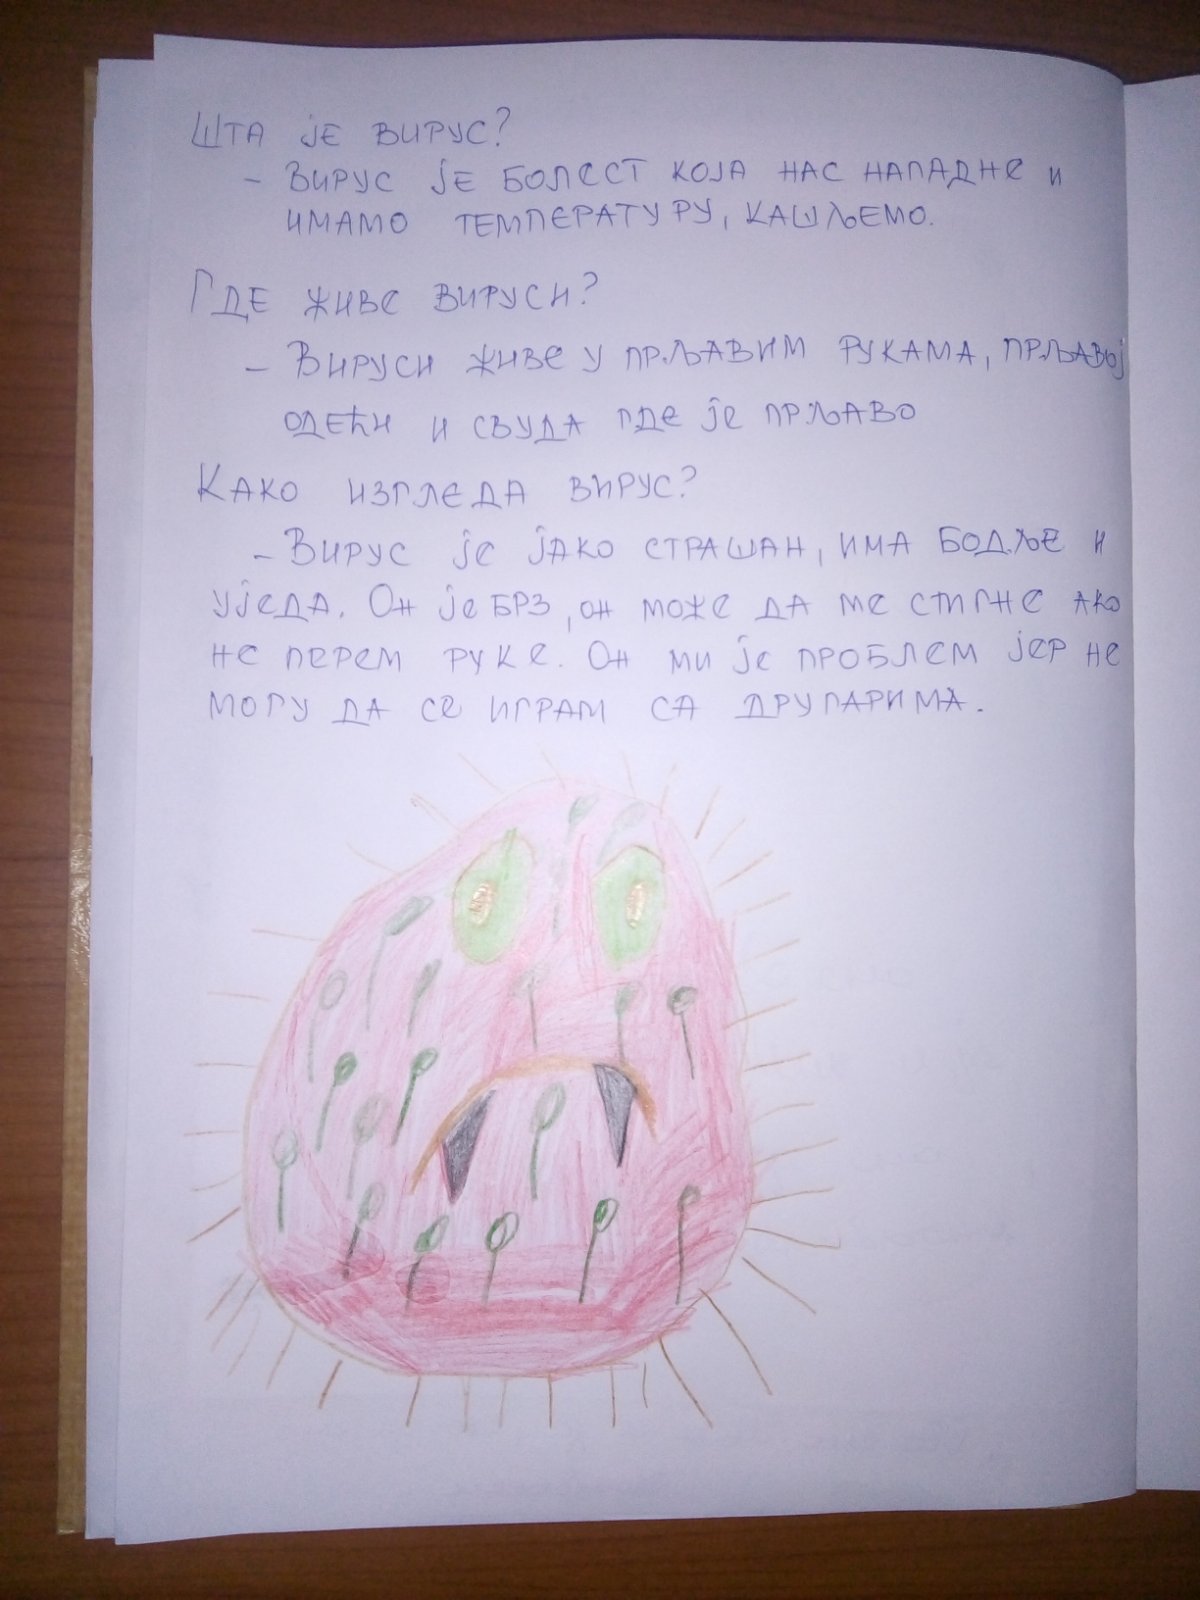 Шта је вирус?
- Вирус је болест која нас нападне и
имамо температуру, кашљемо.
Где живе вируси?
- Вируси живе у прљавим рукама, прљавој
одећи и свуда где је прљаво
Како изгледа вирус?
- Вирус је јако страшан, има бодље и
уједа. Он је брз, он може да ме стигне ако
не перем руке. Он ми је проблем јер не
могу да се играм са другарима.